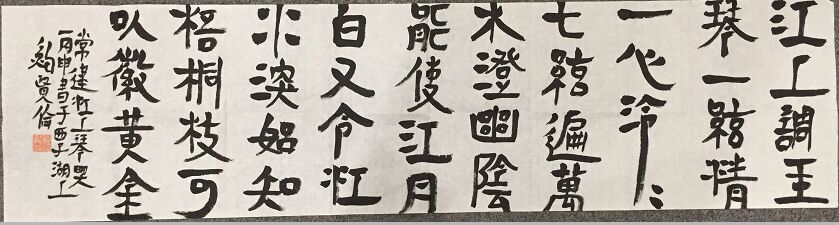 江上調玉
琴一絃清
一心泠〻
七絃遍萬
木澄幽陰
能使江月
白又令江
水深始知
梧桐枝可
以徽黃金
常建江上琴興
丙申書于西子湖上
鮑賢倫